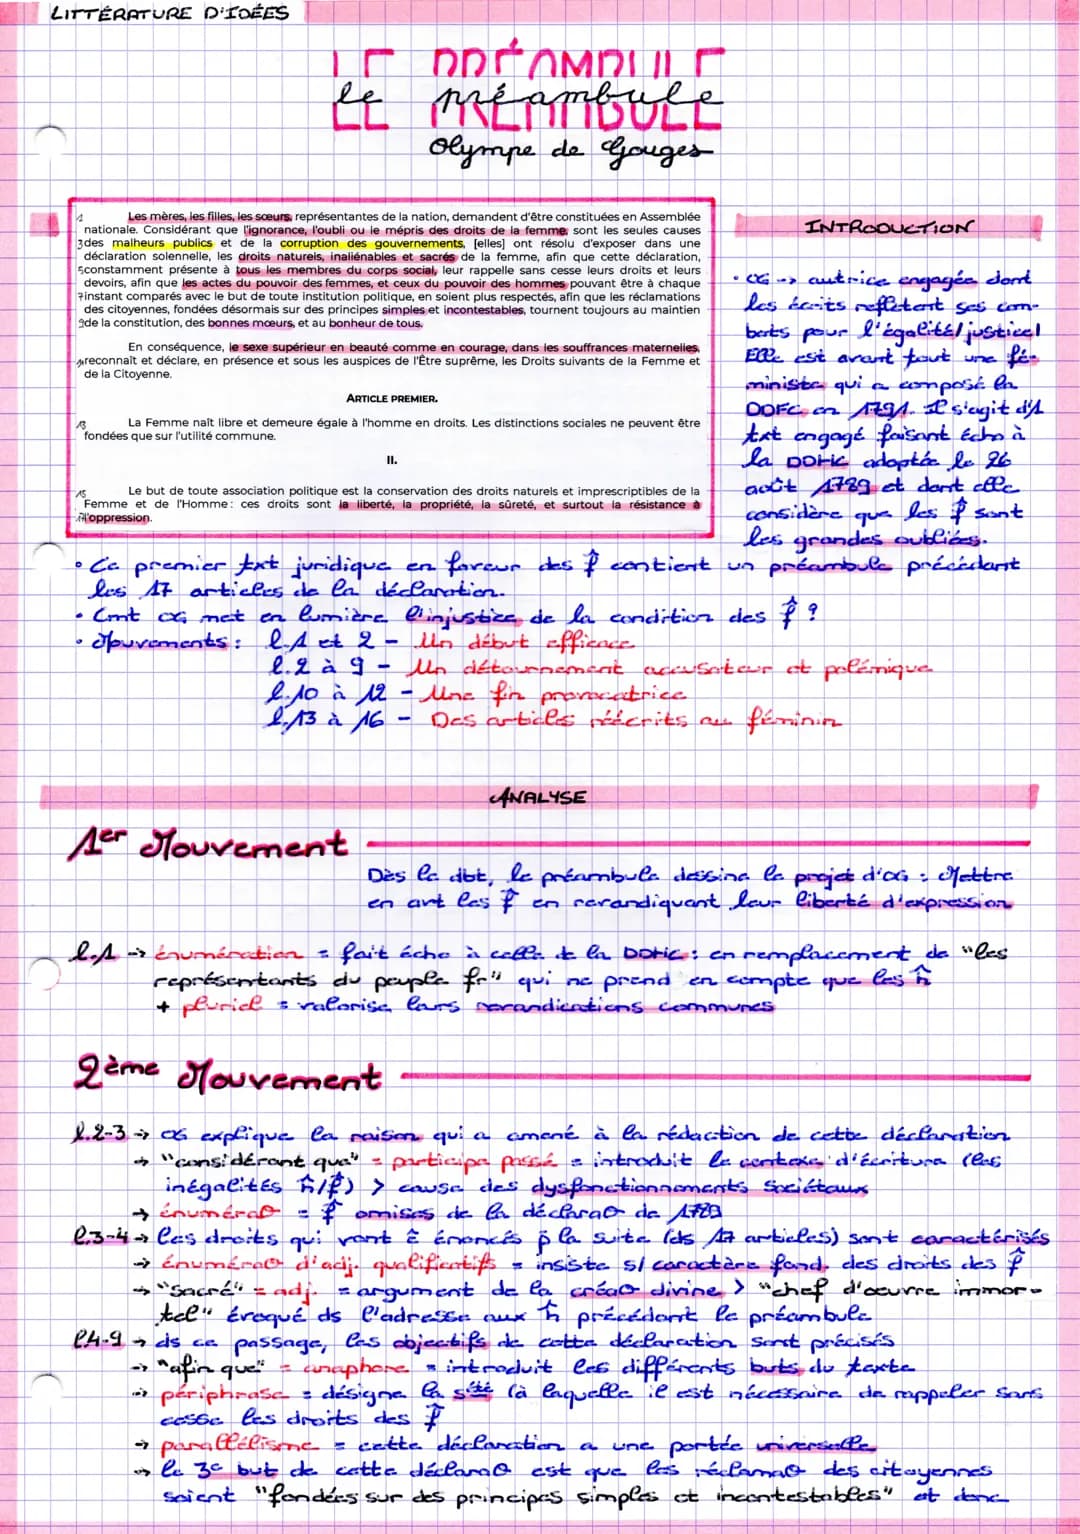 LITTÉRATURE D'IDÉES
LE PRÉAMBULE
le préambule
Olympe de Gouges
1 Les mères, les filles, les sœurs, représentantes de la nation, demandent d'être constituées en Assemblée
nationale. Considérant que l'ignorance, l'oubli ou le mépris des droits de la femme, sont les seules causes
3 des malheurs publics et de la corruption des gouvernements, [elles] ont résolu d'exposer dans une
déclaration solennelle, les droits naturels, inaliénables et sacrés de la femme, afin que cette déclaration,
5 constamment présente à tous les membres du corps social, leur rappelle sans cesse leurs droits et leurs
devoirs, afin que les actes du pouvoir des femmes, et ceux du pouvoir des hommes pouvant être à chaque
7 instant comparés avec le but de toute institution politique, en soient plus respectés, afin que les réclamations
des citoyennes, fondées désormais sur des principes simples et incontestables, tournent toujours au maintien
9 de la constitution, des bonnes mœurs, et au bonheur de tous.
En conséquence, le sexe supérieur en beauté comme en courage, dans les souffrances maternelles,
11 reconnaît et déclare, en présence et sous les auspices de l'Être suprême, les Droits suivants de la Femme et
de la Citoyenne.
ARTICLE PREMIER.
13 La Femme naît libre et demeure égale à l'homme en droits. Les distinctions sociales ne peuvent être
fondées que sur l'utilité commune.
II.
15 Le but de toute association politique est la conservation des droits naturels et imprescriptibles de la
Femme et de l'Homme : ces droits sont la liberté, la propriété, la sûreté, et surtout la résistance à
l'oppression.
INTRODUCTION
• OG -> autrice engagée dont
les écrits reflètent ses com-
bats pour l'égalité/justice!
Elle est avant tout une fé-
ministe qui a composé la
DDFC en 1791. Il s'agit d'1
txt engagé faisant écho à
la DDHC adoptée le 26
août 1789 et dont elle
considère que les f sont
les grandes oubliées.
• Ce premier txt juridique en faveur des f contient un préambule précédant
les 17 articles de la déclaration.
• Cmt OG met en lumière l'injustice de la condition des f ?
• Mouvements : l.1 et 2 - Un début efficace
l.2 à 9 - Un détournement accusateur et polémique
l.10 à 12 - Une fin provocatrice
l.13 à 16 - Des articles réécrits au féminin
ANALYSE
1er Mouvement
Dès le dbt, le préambule dessine le projet d'OG : Mettre
en avt les f en revendiquant leur liberté d'expression
l.1 -> énumération = fait écho à celle de la DDHC : en remplacement de "les
représentants du peuple fr" qui ne prend en compte que les h
+ pluriel = valorise leurs revendications communes
2ème Mouvement
l.2-3 -> OG explique la raison qui a amené à la rédaction de cette déclaration
-> "considérant que" = participe passé = introduit le contexe d'écriture (les
inégalités h/f) > cause des dysfonctionnements sociétaux
-> énumérao = f omises de la déclarao de 1789
l.3-4 -> les droits qui vont ê énoncés p la suite (ds 17 articles) sont caractérisés
-> énumérao d'adj. qualificatifs = insiste s/ caractère fond. des droits des f
-> "Sacré" = adj. = argument de la créao divine > "chef d'œuvre immor-
tel" évoqué ds l'adresse aux h précédant le préambule
l.4-9 -> ds ce passage, les objectifs de cette déclaration sont précisés
-> "afin que" = anaphore = introduit les différents buts du texte
-> périphrase = désigne la sté (à laquelle il est nécessaire de rappeler sans
cesse les droits des f
-> parallélisme = cette déclaration a une portée universelle
-> le 3e but de cette déclarao est que les réclamao des citoyennes
soient "fondées sur des principes simples et incontestables" et donc